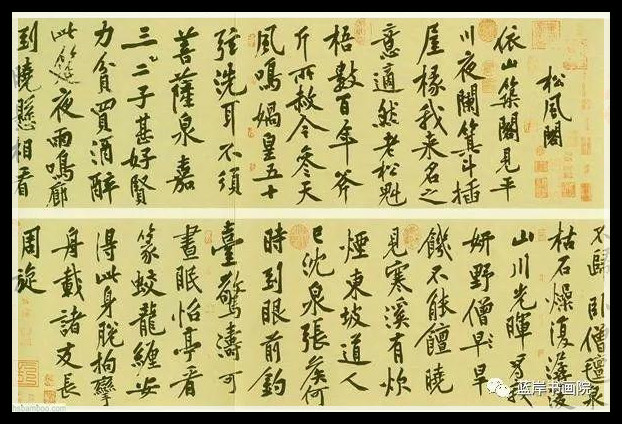 松風閣
依山築閣見平
川夜闌箕斗插
屋椽我來名之
意適然老松魁
梧數百年斧
斤所赦今參天
風鳴媧皇五十
弦洗耳不須
菩薩泉嘉
三二子甚好賢
力貧買酒醉
此筵夜雨鳴廊
到曉懸相看
不歸臥僧氈泉
枯石燥復潺湲
山川光暉為我
妍野僧早旱
饑不能饘曉
見寒溪有炊
煙東坡道人
已沈泉張侯何
時到眼前釣
臺驚濤可
晝眠怡亭看
篆蛟龍纏安
得此身脫拘攣
舟載諸友長
周旋
蓝岸书画院